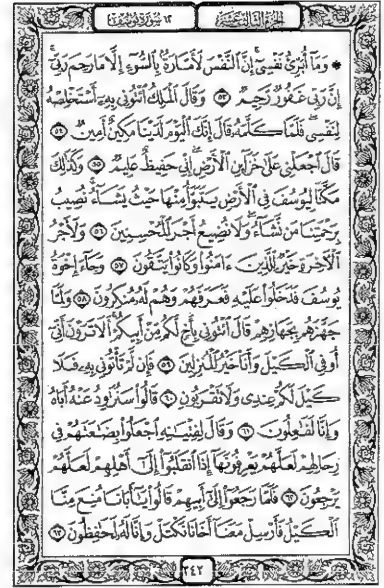 الجزء الثالث عشر
١٢ سورة يوسف
* وَمَا أُبَرِّئُ نَفْسِي إِنَّ النَّفْسَ لَأَمَّارَةٌ بِالسُّوءِ إِلَّا مَا رَحِمَ رَبِّي
إِنَّ رَبِّي غَفُورٌ رَّحِيمٌ ٥٣ وَقَالَ الْمَلِكُ ائْتُونِي بِهِ أَسْتَخْلِصْهُ
لِنَفْسِي فَلَمَّا كَلَّمَهُ قَالَ إِنَّكَ الْيَوْمَ لَدَيْنَا مَكِينٌ أَمِينٌ ٥٤
قَالَ اجْعَلْنِي عَلَى خَزَائِنِ الْأَرْضِ إِنِّي حَفِيظٌ عَلِيمٌ ٥٥ وَكَذَلِكَ
مَكَّنَّا لِيُوسُفَ فِي الْأَرْضِ يَتَبَوَّأُ مِنْهَا حَيْثُ يَشَاءُ نُصِيبُ
بِرَحْمَتِنَا مَن نَّشَاءُ وَلَا نُضِيعُ أَجْرَ الْمُحْسِنِينَ ٥٦ وَلَأَجْرُ
الْآخِرَةِ خَيْرٌ لِّلَّذِينَ ءَامَنُوا وَكَانُوا يَتَّقُونَ ٥٧ وَجَاءَ إِخْوَةُ
يُوسُفَ فَدَخَلُوا عَلَيْهِ فَعَرَفَهُمْ وَهُمْ لَهُ مُنكِرُونَ ٥٨ وَلَمَّا
جَهَّزَهُم بِجَهَازِهِمْ قَالَ ائْتُونِي بِأَخٍ لَّكُم مِّنْ أَبِيكُمْ أَلَا تَرَوْنَ أَنِّي
أُوفِي الْكَيْلَ وَأَنَا خَيْرُ الْمُنزِلِينَ ٥٩ فَإِن لَّمْ تَأْتُونِي بِهِ فَلَا
كَيْلَ لَكُمْ عِندِي وَلَا تَقْرَبُونِ ٦٠ قَالُوا سَنُرَاوِدُ عَنْهُ أَبَاهُ
وَإِنَّا لَفَاعِلُونَ ٦١ وَقَالَ لِفِتْيَانِهِ اجْعَلُوا بِضَاعَتَهُمْ فِي
رِحَالِهِمْ لَعَلَّهُمْ يَعْرِفُونَهَا إِذَا انقَلَبُوا إِلَى أَهْلِهِمْ لَعَلَّهُمْ
يَرْجِعُونَ ٦٢ فَلَمَّا رَجَعُوا إِلَى أَبِيهِمْ قَالُوا يَا أَبَانَا مُنِعَ مِنَّا
الْكَيْلُ فَأَرْسِلْ مَعَنَا أَخَانَا نَكْتَلْ وَإِنَّا لَهُ لَحَافِظُونَ ٦٣
٢٤٢